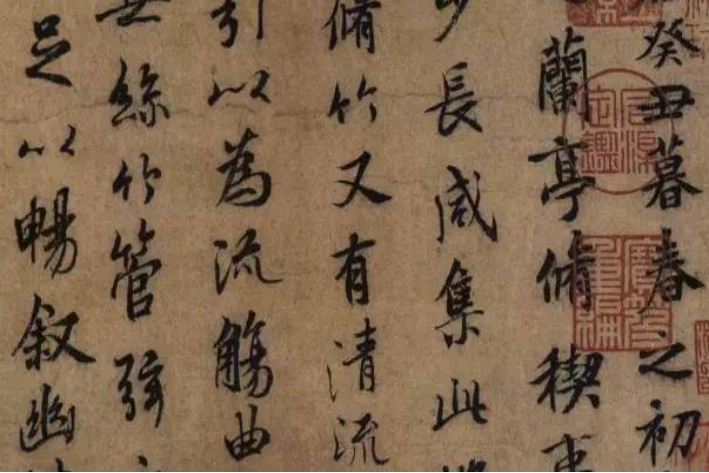 癸丑暮春之初
蘭亭脩稧事
少長咸集此
脩竹又有清流
引以為流觴曲
無絲竹管弦
足以暢叙幽